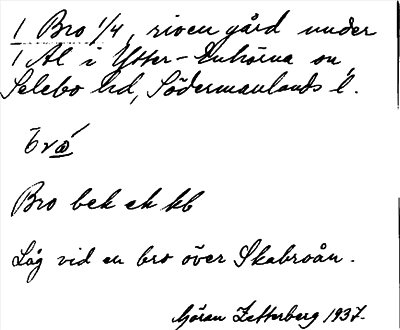 1 Bro 1/4, riven gård under
1 Al i Ytter-Enhörna sn,
Selebo hd, Södermanlands l.
Bro bek ek kb
Låg vid en bro över Skabroån.
Göran Zetterberg 1937.